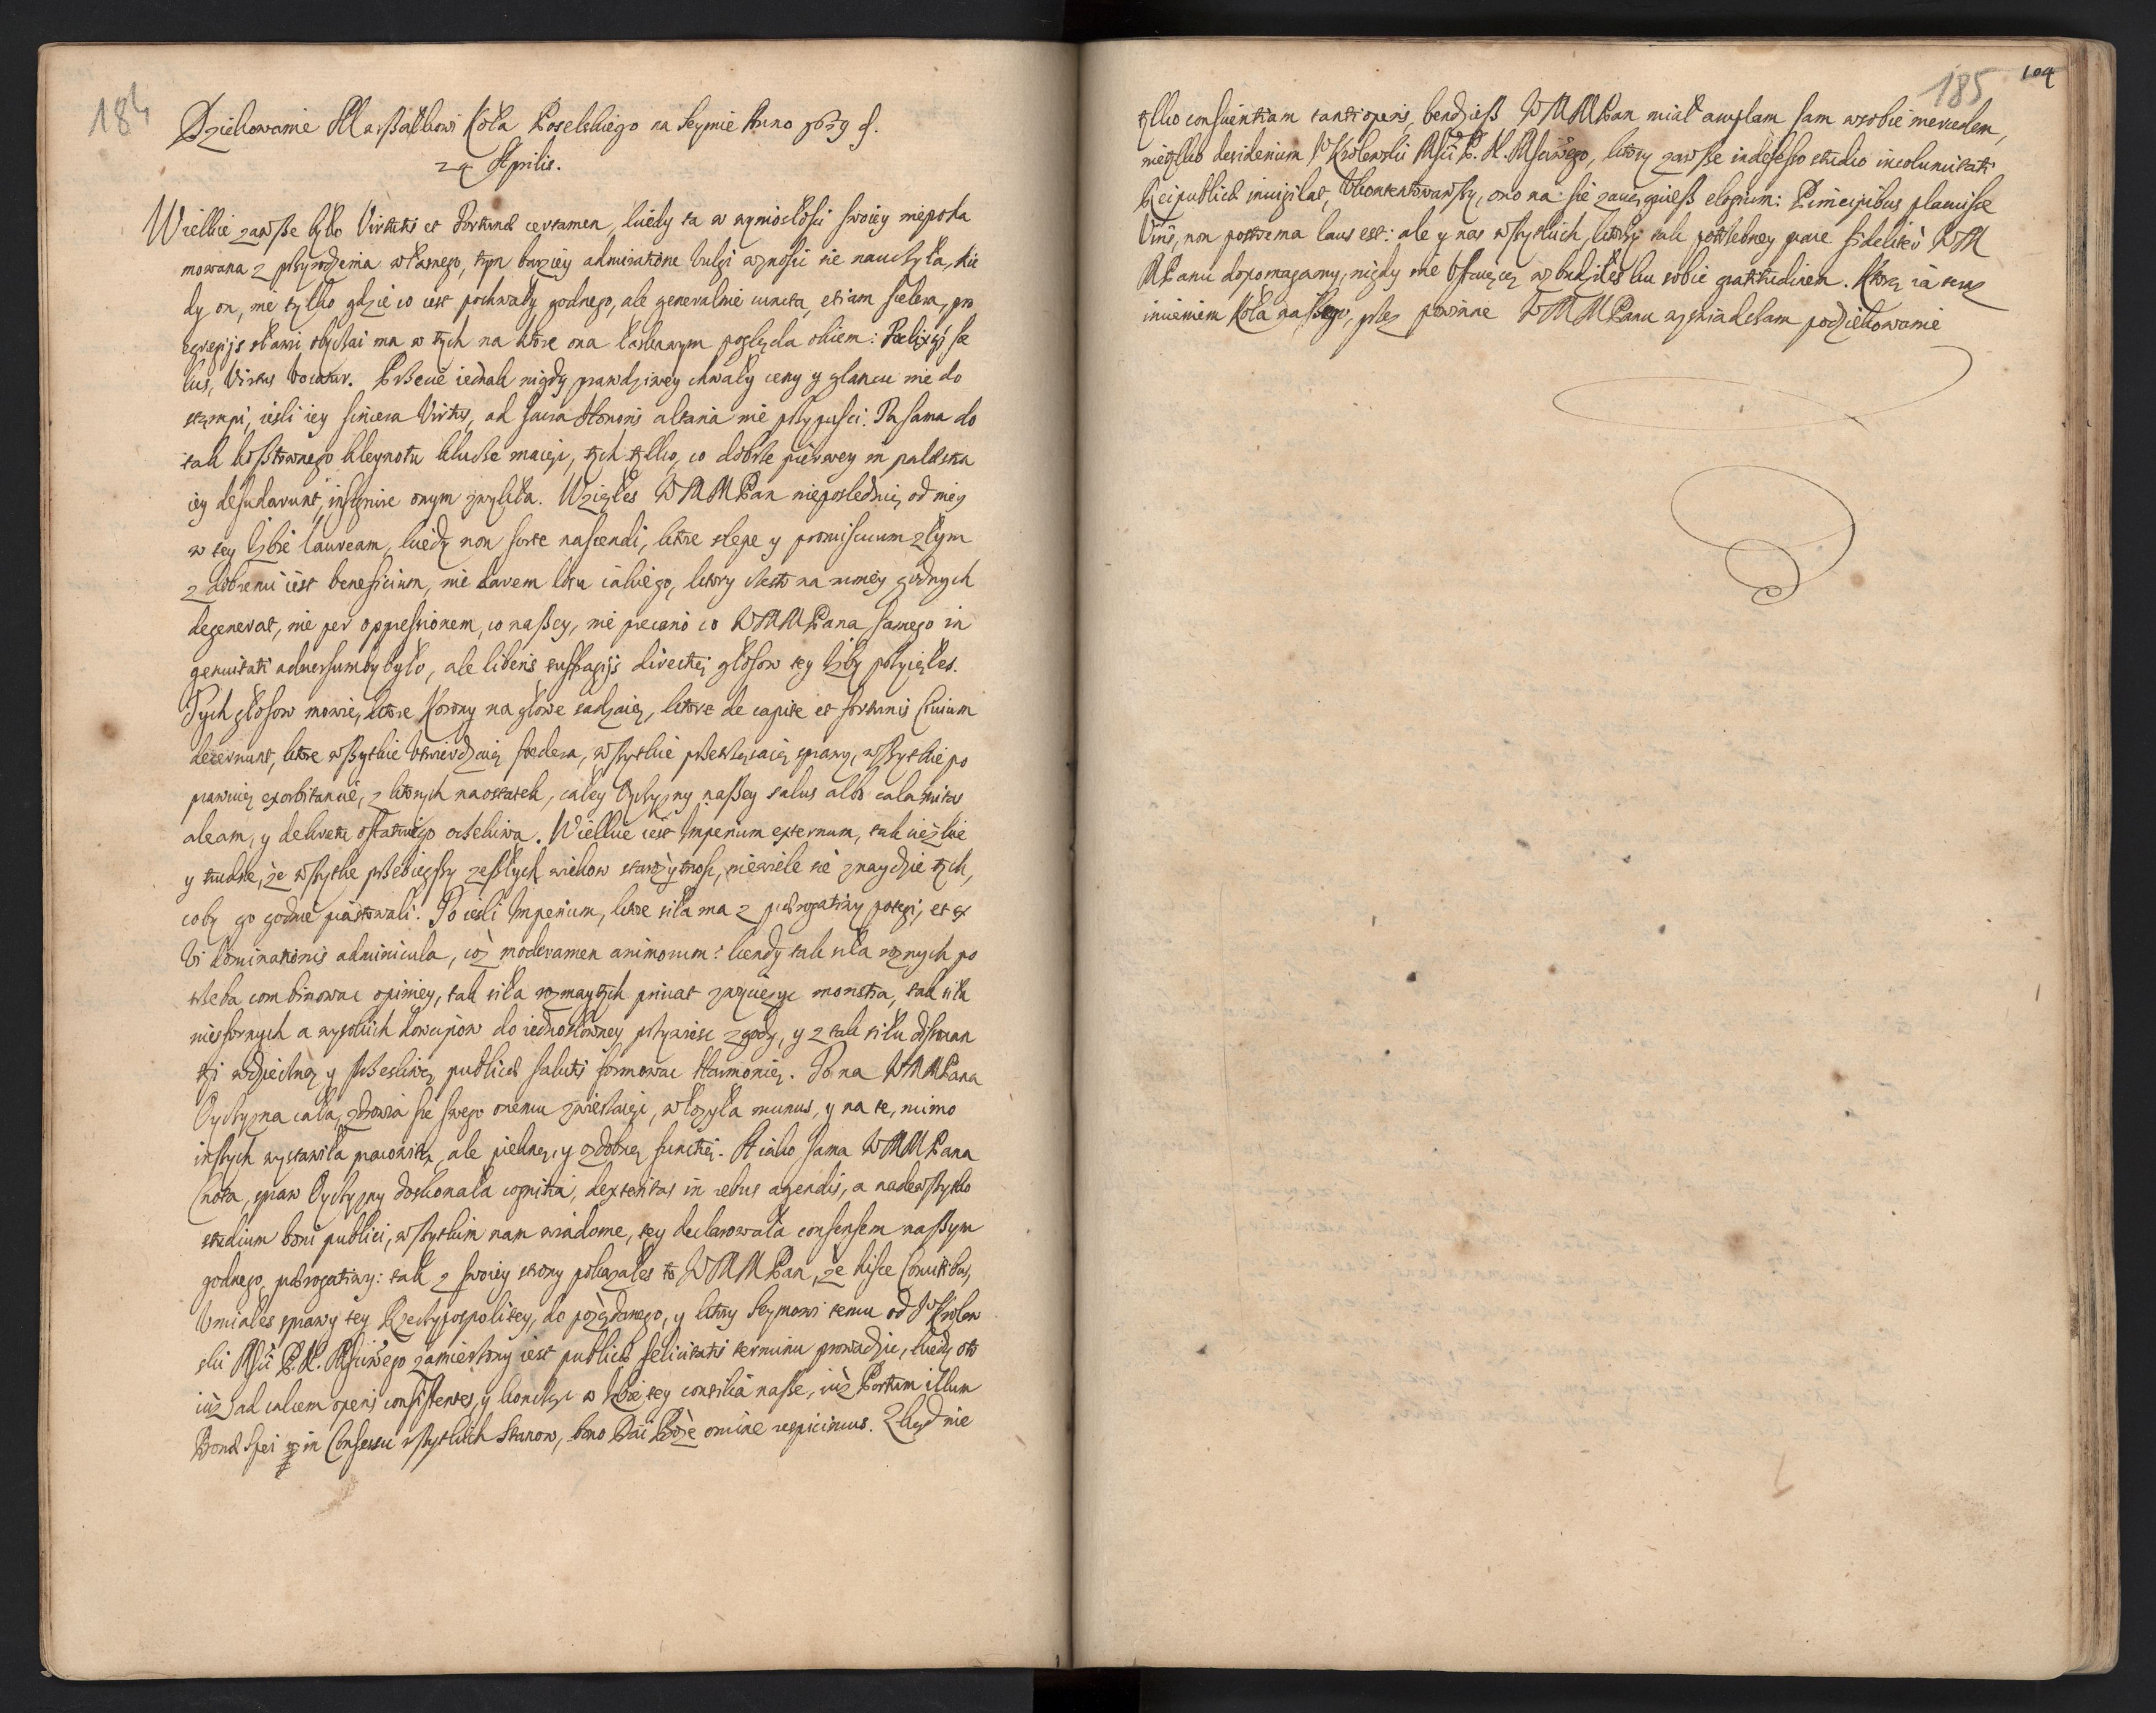 184
Dziekowanie Marßałkowi Koła Poselskiego na Seymie Anno
24 Aprilis.
Wielkie zawße było Virtutis et Fortunæ certamen, kiedy ta w wyniosłości swoiey niepoha
mowana z przyrodzenia własnego, tym barziey admiratione vulgi wznosić sie nauczyła, kie
dy on, nie tylko gdzie co iest pochwały godnego, ale generalnie cuncta, etiam scelera, pro
egregijs sławić obyczai ma w tych na ktore ona łaskawym pogląda okiem: Fælix sce
lus, Virtus vocatur. Przecie iednak nigdy prawdziwey chwały ceny y glancu nie do
stąmpi, iesli iey sincera Virtus, ad sacra Honoris altaria nie przypusci. Ta sama do
tak kosztownego kleynotu klucze maiąc, tych tylko, co dobrze pierwey in palæstra
iey desudarunt, insignire onym zwykła. Wziąłeś WMMPan nieposlednią od niey
w tey Izbie lauream, kiedy non sorte nascendi, ktore slepe y promiscuum złym
z dobremi iest beneficium, nie darem losu iakiego, ktory często na mniey godnych
degenerat, nie per oppressionem, co naszey, nie precario co WMMPana samego in
genuitati adversumby było, ale liberis suffragijs directią głosow tey Izby przyiąłeś.
Tych głosow mowie, ktore Korony na głowe sadzaią, ktore de capite et fortunis Civium
decernunt, ktore wßytkie vtwierdzaią fœdera, wszytkie przetrząsaią sprawy, wßytkie po
prawuią exorbitancie, z ktorych naostatek, całey Oyczyzny naßey salus albo calamitas
aleam, y dekretu ostatniego oczekiwa. Wielkie iest Imperium externum, tak cięzkie
y trudne, że wszytkie przebiegszy zeszłych wiekow starożytnosc, niewiele sie znaydzie tych,
coby go godnie piastowali. To iesli Imperium, ktore siła ma z prærogatiwy potegi, et ex
vi dominationis adminicula, coż moderamen animorum: kendy tak siła roznych po
trzeba combinowac opiniey, tak siła rozmaytych privat zwyciężyc monstra, tak siła
niesfornych a wysokich dowcipow do iednosłowney przywiesc zgody, y z tak siłu dissonan
tji wdzięczną y szczesliwą publicæ saluti formowac Harmonią. To na WMMPana
Oyczyzna cała, zdrowia sie swego onemu zwierzaiąc, włozyła munus, y na te, mimo
inszych wystawiła pracowitą, ale piekną, y ozdobną functią. A iako sama WMMPana
Cnota, spraw Oyczyzny doskonała cognitia, dexteritas in rebus agendis, a nadewszytko
studium boni publici, wszytkim nam wiadome, tey declarowała consensem naßym
godnego prærogatiwy: tak z swoiey strony pokazałeś to WMMPan, że hisce Comitibus,
vmiałes sprawy tey Rzeczypospolitey, do pożądanego, y ktory Seymowi temu od JoKrolew
skiej Msći P. N. Msćiwego zamierzony iest publicæ felicitatis terminu prowadzic, kiedy oto
iuż ad calcem operis consistentes, y koncząc w Izbie tey consilia naße, iuż Portum illum
Bonæ Spei in Consessu wszytkich Stanow, bono Dai Boże omine respicimus. Zkąd nie
185
104
tylko conscientiam tanti operis, bendzieß WMMPan miał amplam sam w sobie mercedem,
nietylko desiderium JoKrolewskiej Msći P. N. Msćiwego, ktory zawsze indefesso studio incolumitati
Reipublicæ invigilat, vkontentowawszy, ono na sie zaciągnieß elogium: Principibus placuisse
Viris, non postrema laus est: ale y nas wszytkich, ktorzy tak potrzebney prace fideliter WM
MPanu dopomagamy, nigdy nie vstaiącą wzbudziłeś ku sobie gratitudinem. Ktorą ia teraz
imieniem Koła naßego, przez powinne WMMPanu wyswiadczam podziekowanie